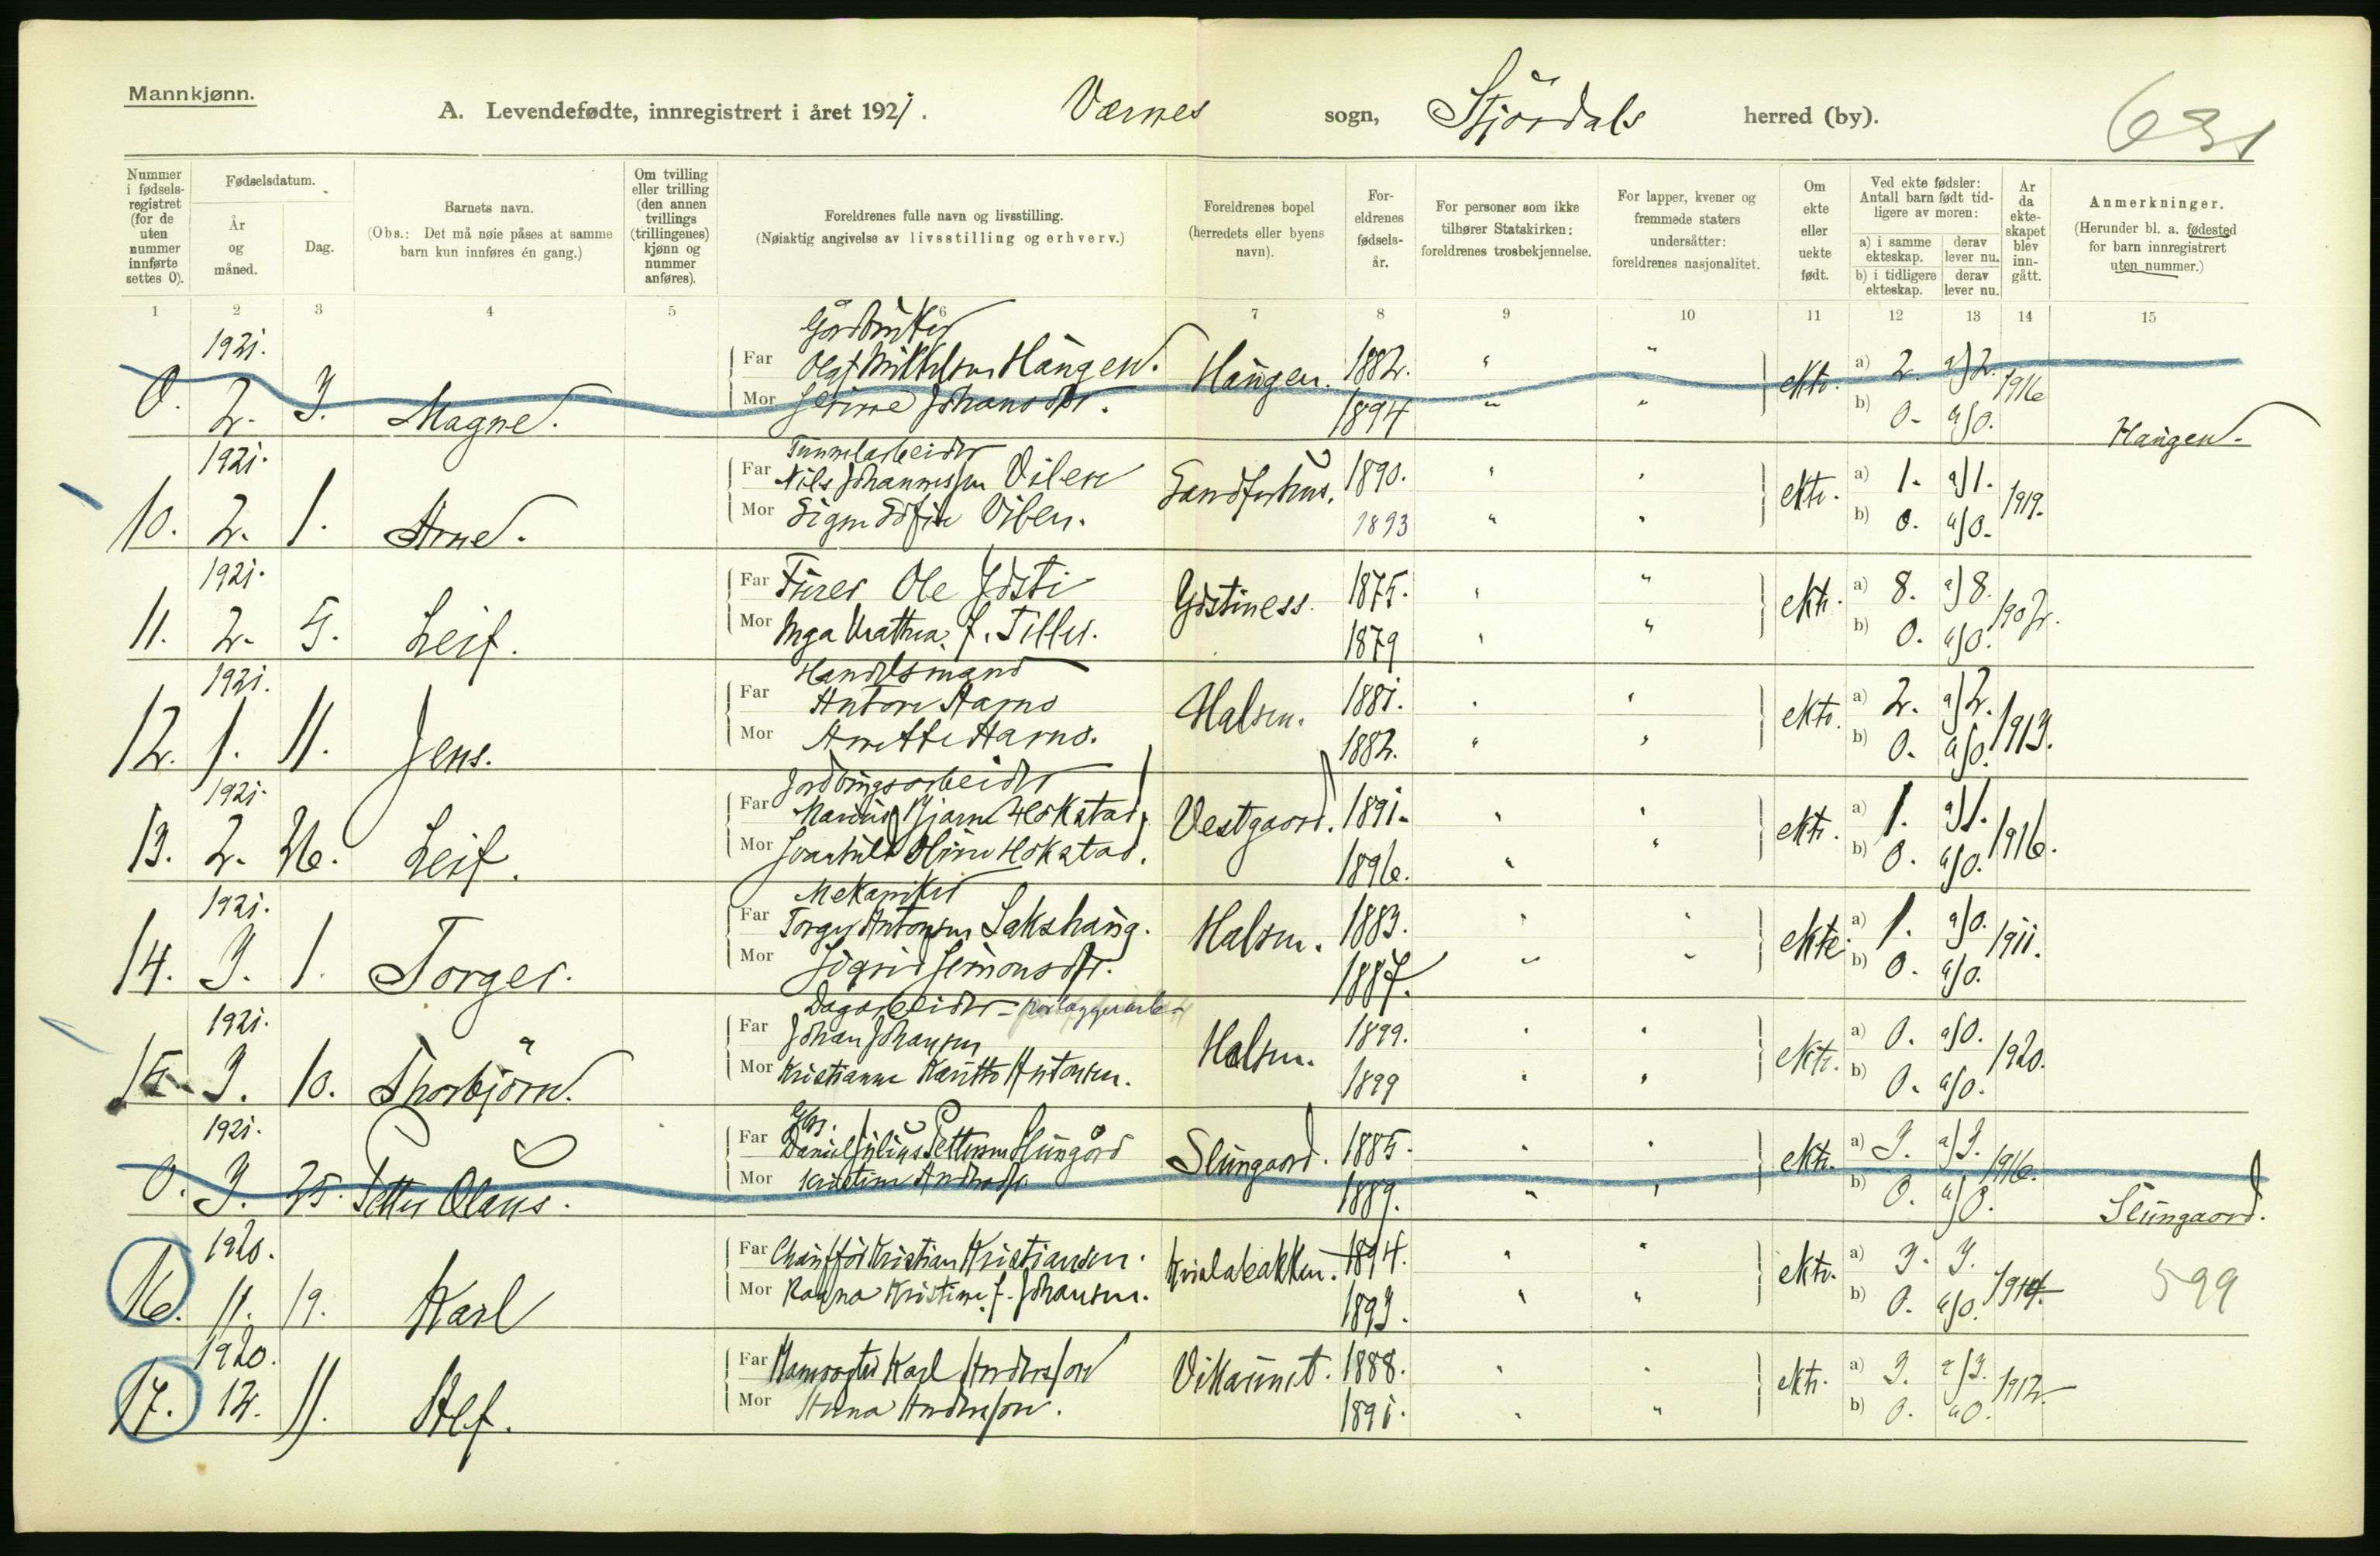 Mannkjønn.
A. Levendefødte, innregistrert i året 1921. Værnes sogn, Stjördals herred (by).
631
Nummer i fødselsregistret (for de uten nummer innførte settes 0).
Fødselsdatum.
År og måned.
Dag.
Barnets navn.
(Obs.: Det må nøie påses at samme barn kun innføres én gang.)
Om tvilling eller trilling (den annen tvillings (trillingenes) kjønn og nummer anføres).
Foreldrenes fulle navn og livsstilling.
(Nøiaktig angivelse av livsstilling og erhverv.)
Foreldrenes bopel (herredets eller byens navn).
Foreldrenes fødselsår.
For personer som ikke tilhører Statskirken: foreldrenes trosbekjennelse.
For lapper, kvener og fremmede staters undersåtter: foreldrenes nasjonalitet.
Om ekte eller uekte født.
Ved ekte fødsler: Antall barn født tidligere av moren:
a) i samme ekteskap. derav lever nu.
b) i tidligere ekteskap. derav lever nu.
År da ekteskapet blev inngått.
Anmerkninger.
(Herunder bl. a. fødested for barn innregistrert uten nummer.)
1 2 3 4 5 6 7 8 9 10 11 12 13 14 15
Gårdbruker
1921. Far Haugen. Haugen. 1882. " " ekte. a) 2. a) 2. 1916
0. 2. 3. Magne. Mor Johansdtr. 1894 " " b) 0. a) 0. Haugen.
Tunnelarbeider
1921. Far Nils Johannessen Viben Sandferhus. 1890. " " ekte. a) 1. a) 1. 1919.
10. 2. 1. Arne. Mor Signe Sofie Viben. 1893 " " b) 0. a) 0.
1921. Far Ole Gjösti Gjöstiness. 1875. " " ekte. a) 8. a) 8. 1902.
11. 2. 5. Leif. Mor Inga f. Tiller. 1879 " " b) 0. a) 0.
Handelsmand
1921. Far Anton Aarns Halsen. 1881. " " ekte. a) 2. a) 2. 1913.
12. 1. 11. Jens. Mor Anette Aarns. 1882. " " b) 0. a) 0.
1921. Far Marius Bjarne Hokstad, Vestgaard. 1891. " " ekte. a) 1. a) 1. 1916.
13. 2. 26. Leif. Mor Hokstad. 1896. " " b) 0. a) 0.
Mekaniker
1921. Far Torger Antonsen Lakshaug. Halsen. 1883. " " ekte. a) 1. a) 0. 1911.
14. 3. 1. Torger. Mor Sigrid Simonsdtr. 1887. " " b) 0. a) 0.
Dagarbeider –
1921. Far Johan Johansen Halsen. 1899. " " ekte. a) 0. a) 0. 1920.
15. 3. 10. Thorbjörn. Mor Kristianne Antonsen. 1899 " " b) 0. a) 0.
Gbr.
1921. Far Daniel Julius Pettersen Slungård Slungaard. 1885. " " ekte. a) 3. a) 3. 1916.
0. 3. 25. Petter Olaus. Mor Kristine 1889. " " b) 0. a) 0. Slungaard.
1920. Far Chaufför Kristian Kristiansen. 1894. " " ekte. a) 3. 3. 1914.
16. 11. 19. Karl Mor Ragna Kristine f. Johansen. 1893. " " b) 0. a) 0. 599
1920. Far Karl Anderson Vikaunet. 1888. " " ekte. a) 3. a) 3. 1912.
17. 12. 11. Alf. Mor Anna Anderson. 1891. " " b) 0. a 0.